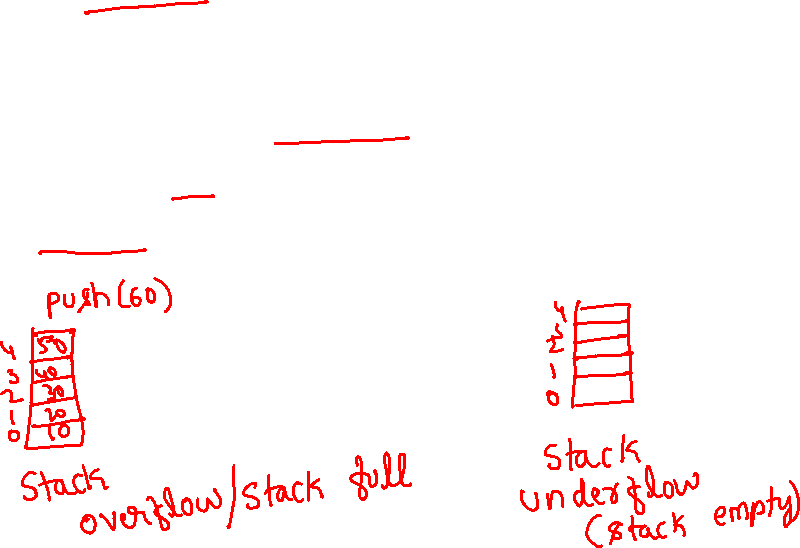 push(60)
4 50
3 40
2 30
1 20
0 10
Stack
overflow/stack full
4
3
2
1
0
Stack
underflow
(stack empty)